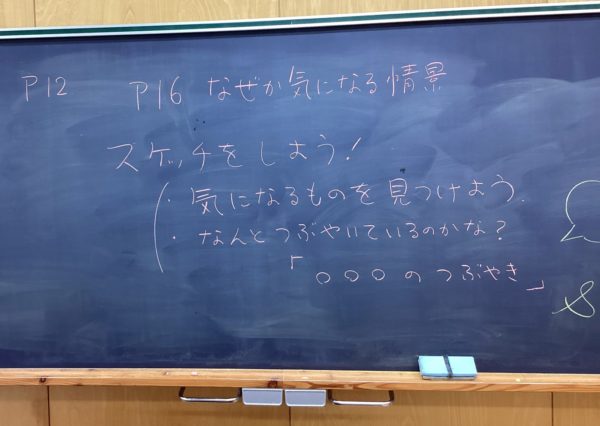 P12 P16 なぜか気になる情景
スケッチをしよう!
・気になるものを見つけよう.
・なんとつぶやいているのかな?
「○○○のつぶやき」